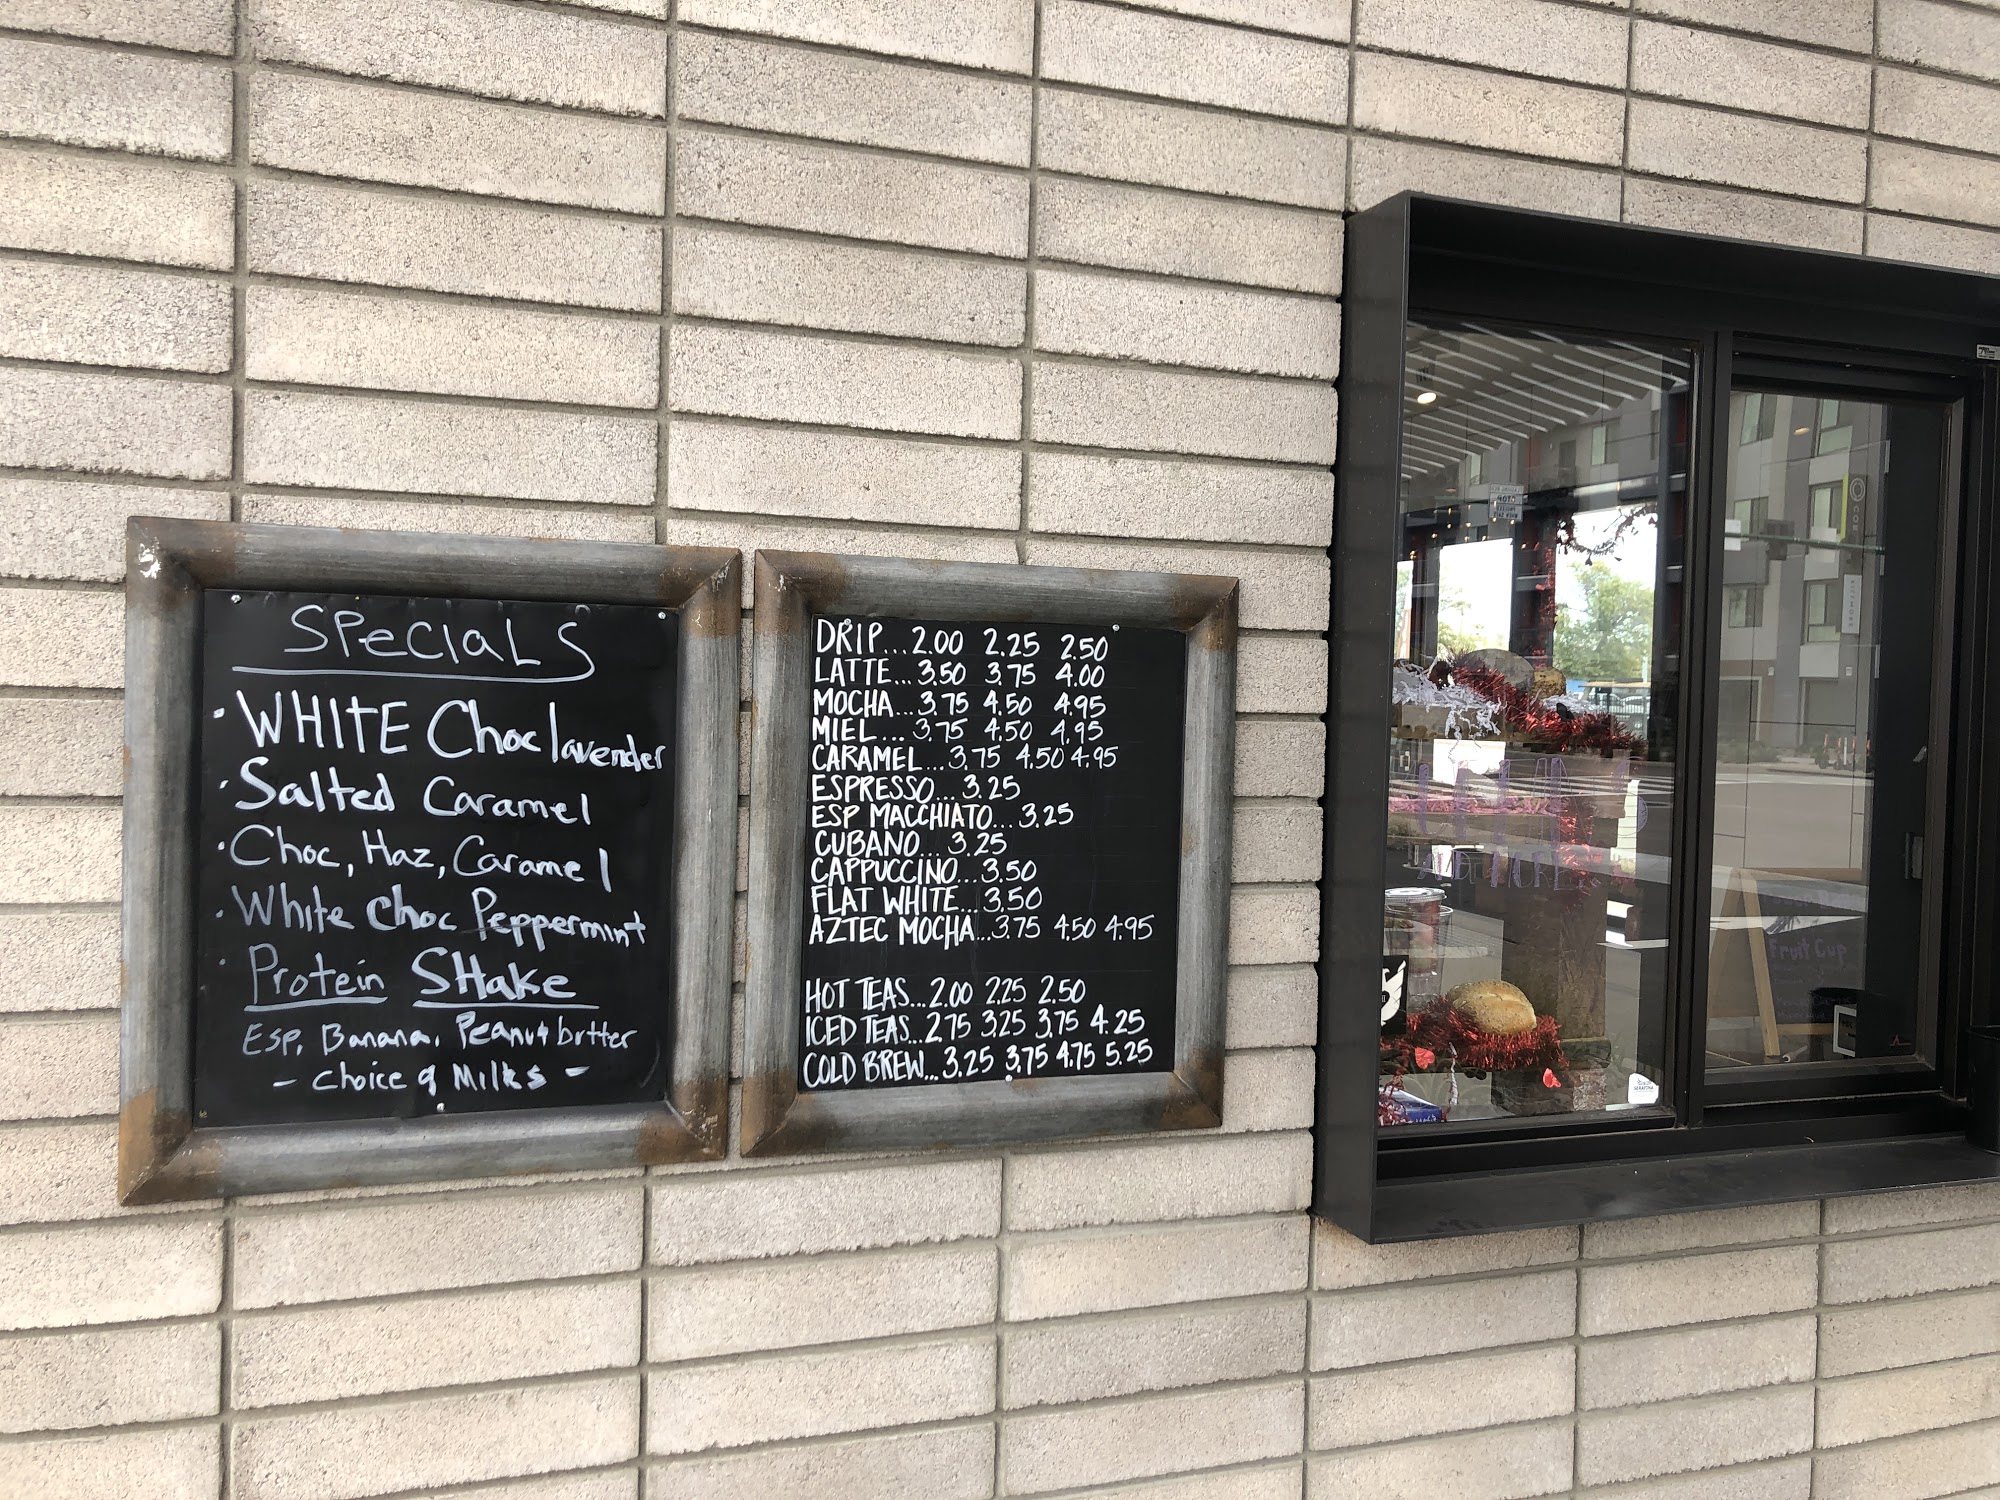 SPecIaLS
• WHITE Choc lavender
• Salted Caramel
• Choc, Haz, Caramel
• White Choc Peppermint
• Protein SHake
Esp, Banana, Peanut butter
- Choice of Milks -
DRIP...2.00 2.25 2.50
LATTE...3.50 3.75 4.00
MOCHA...3.75 4.50 4.95
MIEL...3.75 4.50 4.95
CARAMEL...3.75 4.50 4.95
ESPRESSO...3.25
ESP MACCHIATO...3.25
CUBANO...3.25
CAPPUCCINO...3.50
FLAT WHITE...3.50
AZTEC MOCHA...3.75 4.50 4.95
HOT TEAS...2.00 2.25 2.50
ICED TEAS...2.75 3.25 3.75 4.25
COLD BREW...3.25 3.75 4.75 5.25
AND MORE
Fruit Cup